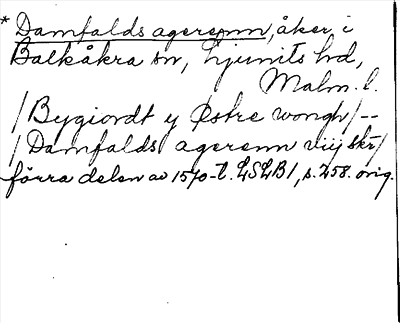 * Damfalds agerenn, åker, i
Balkåkra sn, Ljunits hd,
Malm. l.
/Bygiordt y Østre wongh/--
/Damfalds agerenn viij skr/
förra delen av 1570-t. LSLB1, s. 258. orig.